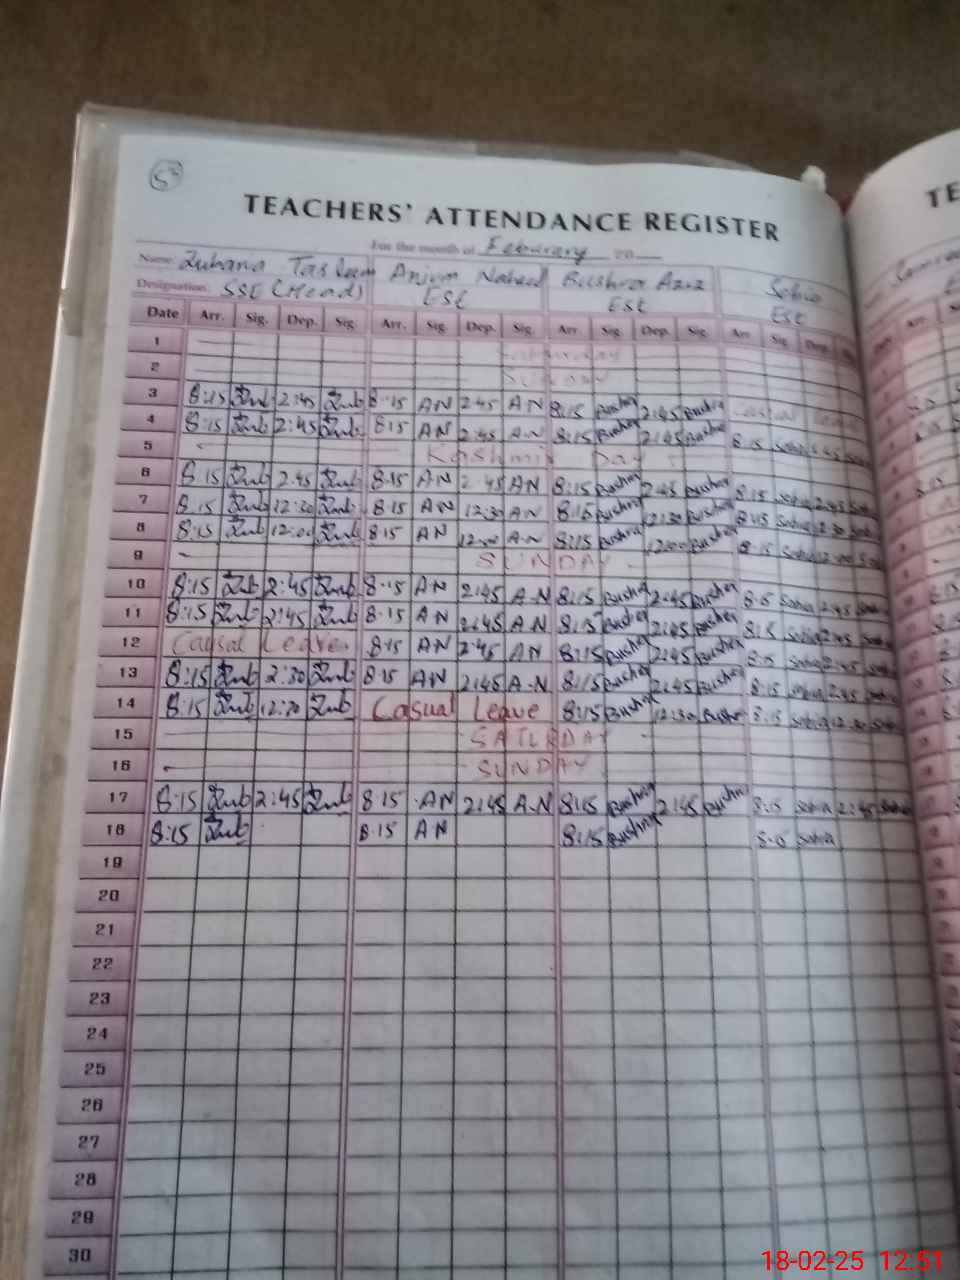 53
TEACHERS' ATTENDANCE REGISTER
For the month of Feburary 20
Name Zuhana Tasleem Anjum Naheed Bushra Aziz Sobia
Designation SSE (Head) ESE ESE ESE
Date Arr. Sig. Dep. Sig. Arr. Sig. Dep. Sig. Arr. Sig. Dep. Sig. Arr. Sig. Dep.
1 Saturday
2 Sunday
3 8:15 Zub 2:45 Zub 8:15 AN 2:45 AN 8:15 Bushra 2:45 Bushra Casual Leave
4 8:15 Zub 2:45 Zub 8:15 AN 2:45 A-N 8:15 Bushra 2:45 Bushra 8:15 Sobia 2:45 Sobia
5 Kashmir Day
6 8:15 Zub 2:45 Zub 8:15 AN 2:45 AN 8:15 Bushra 2:45 Bushra 8:15 Sobia 2:45 Sobia
7 8:15 Zub 12:30 Zub 8:15 AN 12:30 AN 8:15 Bushra 12:30 Bushra 8:15 Sobia 12:30 Sobia
8 8:15 Zub 12:00 Zub 8:15 AN 12:00 A-N 8:15 Bushra 12:00 Bushra 8:15 Sobia 12:00 Sobia
9 SUNDAY
10 8:15 Zub 2:45 Zub 8:15 AN 2:45 A-N 8:15 Bushra 2:45 Bushra 8:15 Sobia 2:45 Sobia
11 8:15 Zub 2:45 Zub 8:15 AN 2:45 A-N 8:15 Bushra 2:45 Bushra 8:15 Sobia 2:45 Sobia
12 Causal Leave 8:15 AN 2:45 AN 8:15 Bushra 2:45 Bushra 8:15 Sobia 2:45 Sobia
13 8:15 Zub 2:30 Zub 8:15 AN 2:45 A-N 8:15 Bushra 2:45 Bushra 8:15 Sobia 2:45 Sobia
14 8:15 Zub 12:30 Zub Casual Leave 8:15 Bushra 12:30 Bushra 8:15 Sobia 12:30 Sobia
15 SATURDAY
16 SUNDAY
17 8:15 Zub 2:45 Zub 8:15 AN 2:45 A-N 8:15 Bushra 2:45 Bushra 8:15 Sobia 2:45 Sobia
18 8:15 Zub 8:15 AN 8:15 Bushra 8:15 Sobia
19
20
21
22
23
24
25
26
27
28
29
30
18-02-25 12:51